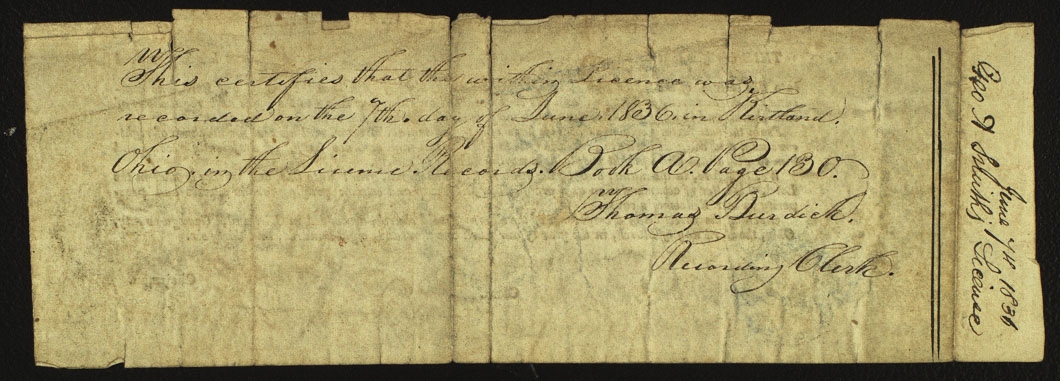 This certifies that the within Licence was
recorded on the 7th. day of June. 1836. in Kirtland.
Ohio. in the License Records. Book A. Page 130.
Thomas Burdick.
Recording Clerk.
Geo A Smith's License
June 7th 1836